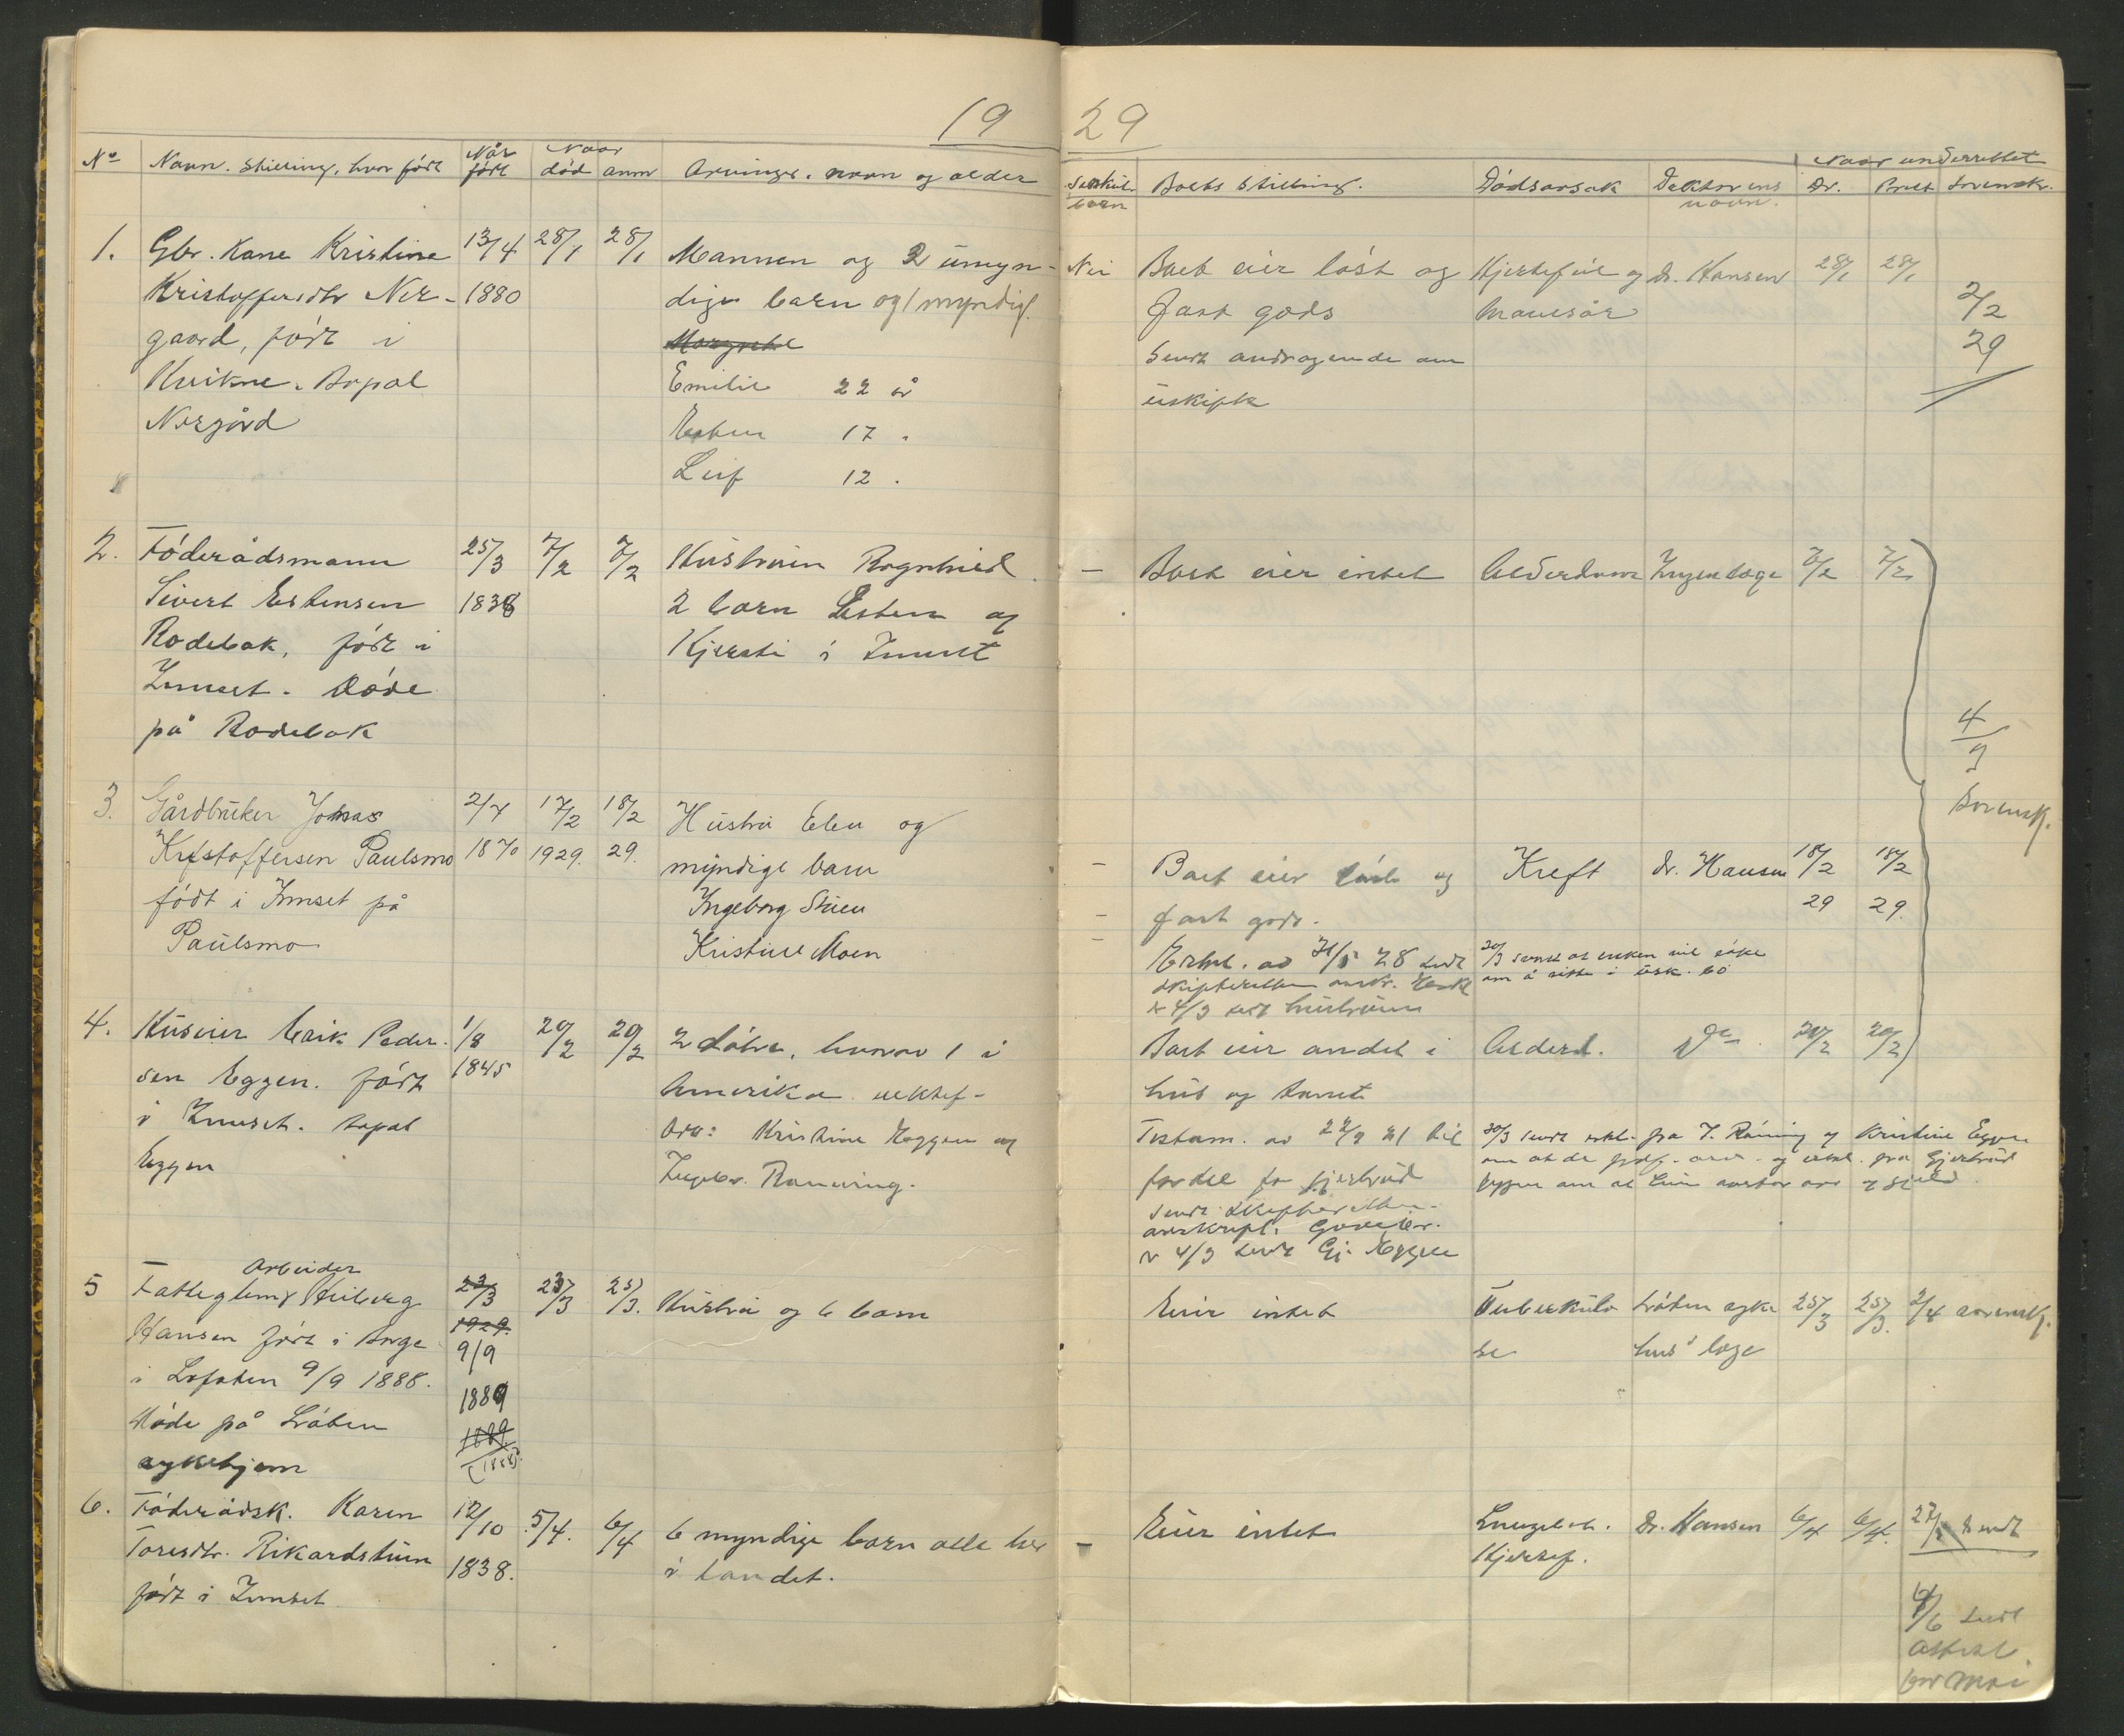 19
29
No
Navn. stilling, hvor født
Når født
Naar
død
anm
Arvinger. navn og alder
Særkul. barn
Boets stilling.
Dødsårsak
Doktorens navn.
Naar underrettet
Dr.
Sorenskr.
1.
Gbr. Kone Kristine
Kristoffersdtr Ner-
gaard, født i
Kvikne. Bopæl
Nergård
13/4
1880
28/1
28/1
Mannen og 2 umyn-
dige barn og 1 myndig.
Margrete
Emilie 22 år
Esten 17 "
Leif 12 "
Nei
Boet eier løst og
fast gods
Sendt andragende om
uskifte
Hjertefeil og
Dr. Hansen
28/1
28/1
2/2
29
2.
Føderådsmann
Sivert Estensen
Rodebak, født i
Innset. Døde
på Rodebak
25/3
1838
7/2
7/2
Hustruen Ragnhild
2 barn Esten og
Kjersti i Innset
-
Boet eier intet
Alderdom
Ingen læge
7/2
7/2
4/3
Sorensk.
3.
Gårdbruker Johnas
Kristoffersen Paulsmo
født i Innset på
Paulsmo
2/7
1870
17/2
1929.
18/2
29.
Hustru Elen og
myndige barn
Ingeborg Stuen
Kristine Moen
-
Boet eier løst og
fast gods.
Kreft
dr. Hansen
18/2
29
18/2
29.
28 sendt
skifteretten
4/3 sendt hustruen
20/3 sendt at enken vil søke
om å sitte i usk. bo
4.
Huseier Erik Peder-
sen Eggen. født
i Innset. Bopæl
Eggen
1/8
1845
20/2
20/2
2 døtre, hvorav 1 i
Amerika
Kristine Eggen og
Ingebor. Rønning.
Boet eier andel i
hus og tomt
Testam. av 22/2 21 til
fordel for Gjertrud
sendt skifteretten
avskrift.
4/3 sendt Gj. Eggen
Alderd.
Do
20/2
20/2
20/3 sendt erkl. fra I. Rønning og Kristine Eggen
og erkl. fra Gjertrud
Eggen om at hun overtar arv og gjeld.
5
Arbeider
Fattiglem Heiberg
Hansen født i Borge
i Lofoten 9/9 1888.
Døde på Løkken
sykehjem
23/3
1929.
9/9
1889
1889
(1888)
23/3
25/3.
Hustru og 6 barn
Eier intet
Tuberkulo
se
Løkken syke
hus' læge
25/3
25/3.
2/4 sorensk.
6.
Føderådsk. Karen
Toresdtr. Rikardstuen
født i Innset
12/10
1838.
5/4.
6/4
6 myndige barn alle her
i landet.
-
Eier intet
Lungebet.
Hjertef.
Dr. Hansen
6/4
6/4.
sendt
6/6 sendt
attest
for Mai